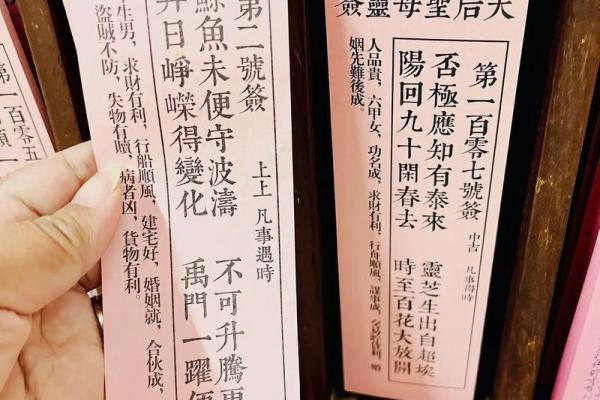 天后聖母靈簽
第一百零七號簽 中吉 凡事得時
否極應知有泰來 靈芝生出自超埃
陽回九十閑春去 時至百花大放開
人品貴，六甲女，功名成，求財有利，行舟順風，謀事成，交易獲利，婚
姻先難後成。
第二號簽 上上 凡事遇時
鯨魚未便守波濤 不可升騰更
日崢嶸得變化 禹門一躍便
生男，求財有利，行船順風，建宅好，婚姻就，合伙成，
盜賊不防，失物有贖，病者凶，貨物有利。
第一百零五